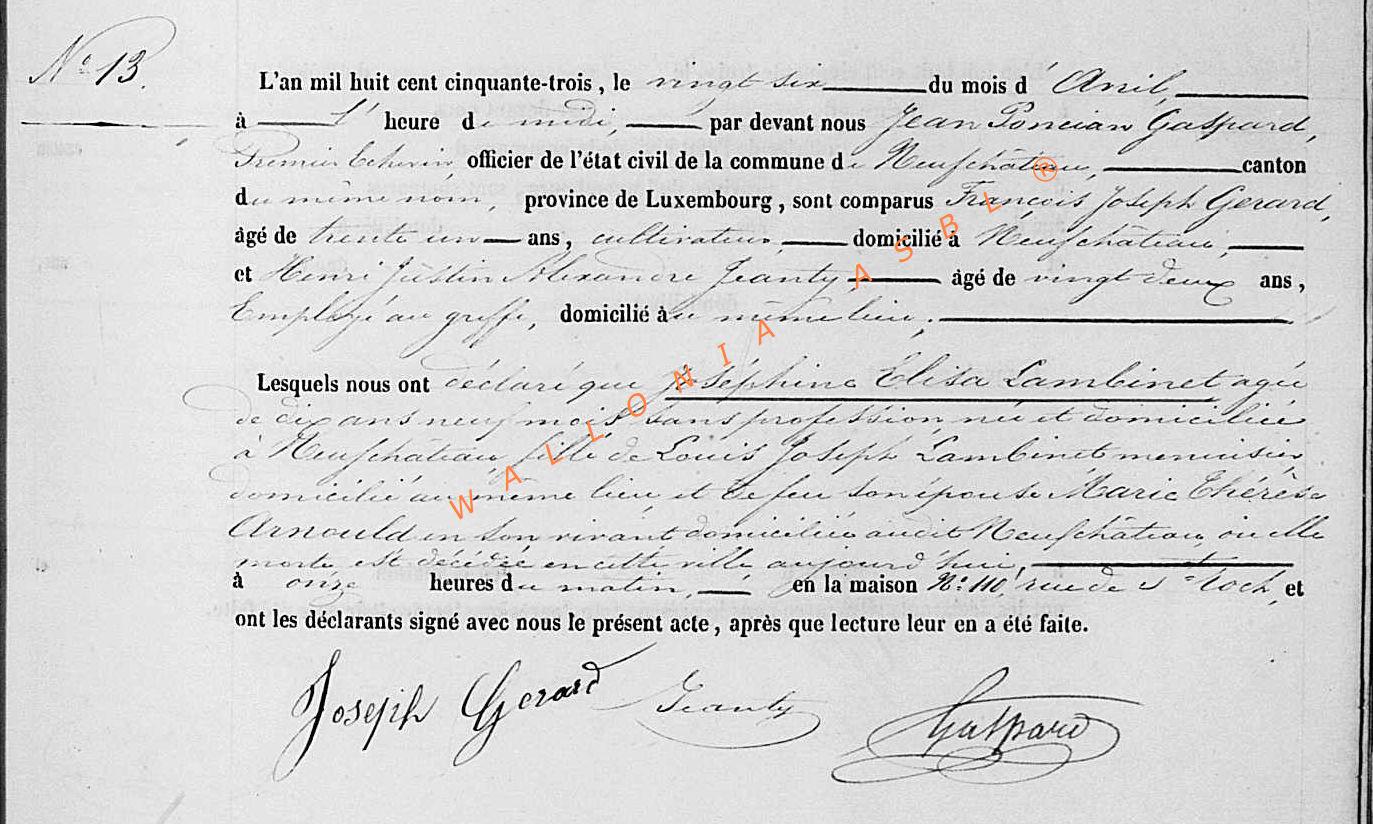 N° 13.
L'an mil huit cent cinquante-trois, le vingt six du mois d'Avril,
à l' heure de midi, par devant nous Jean Poncian Gaspard,
Premier Echevin officier de l'état civil de la commune de Neufchâteau, canton
du même nom, province de Luxembourg, sont comparus François Joseph Gerard,
âgé de trente un ans, cultivateur, domicilié à Neufchâteau,
et Henri Justin Alexandre Jeanty, âgé de vingt deux ans,
Employé au greffe, domicilié au même lieu,
Lesquels nous ont déclaré que Joséphine Elisa Lambinet agée
de dix ans neuf mois sans profession, née et domiciliée
à Neufchâteau fille de Louis Joseph Lambinet menuisier
domicilié au même lieu et de feu son épouse Marie Thérèse
Arnould en son vivant domiciliée audit Neufchâteau, où elle
morte, est décédée en cette ville aujourd'hui,
à onze heures du matin, en la maison N° 110, rue de St Roch, et
ont les déclarants signé avec nous le présent acte, après que lecture leur en a été faite.
Joseph Gerard Jeanty Gaspard
WALLONIA ASBL ®